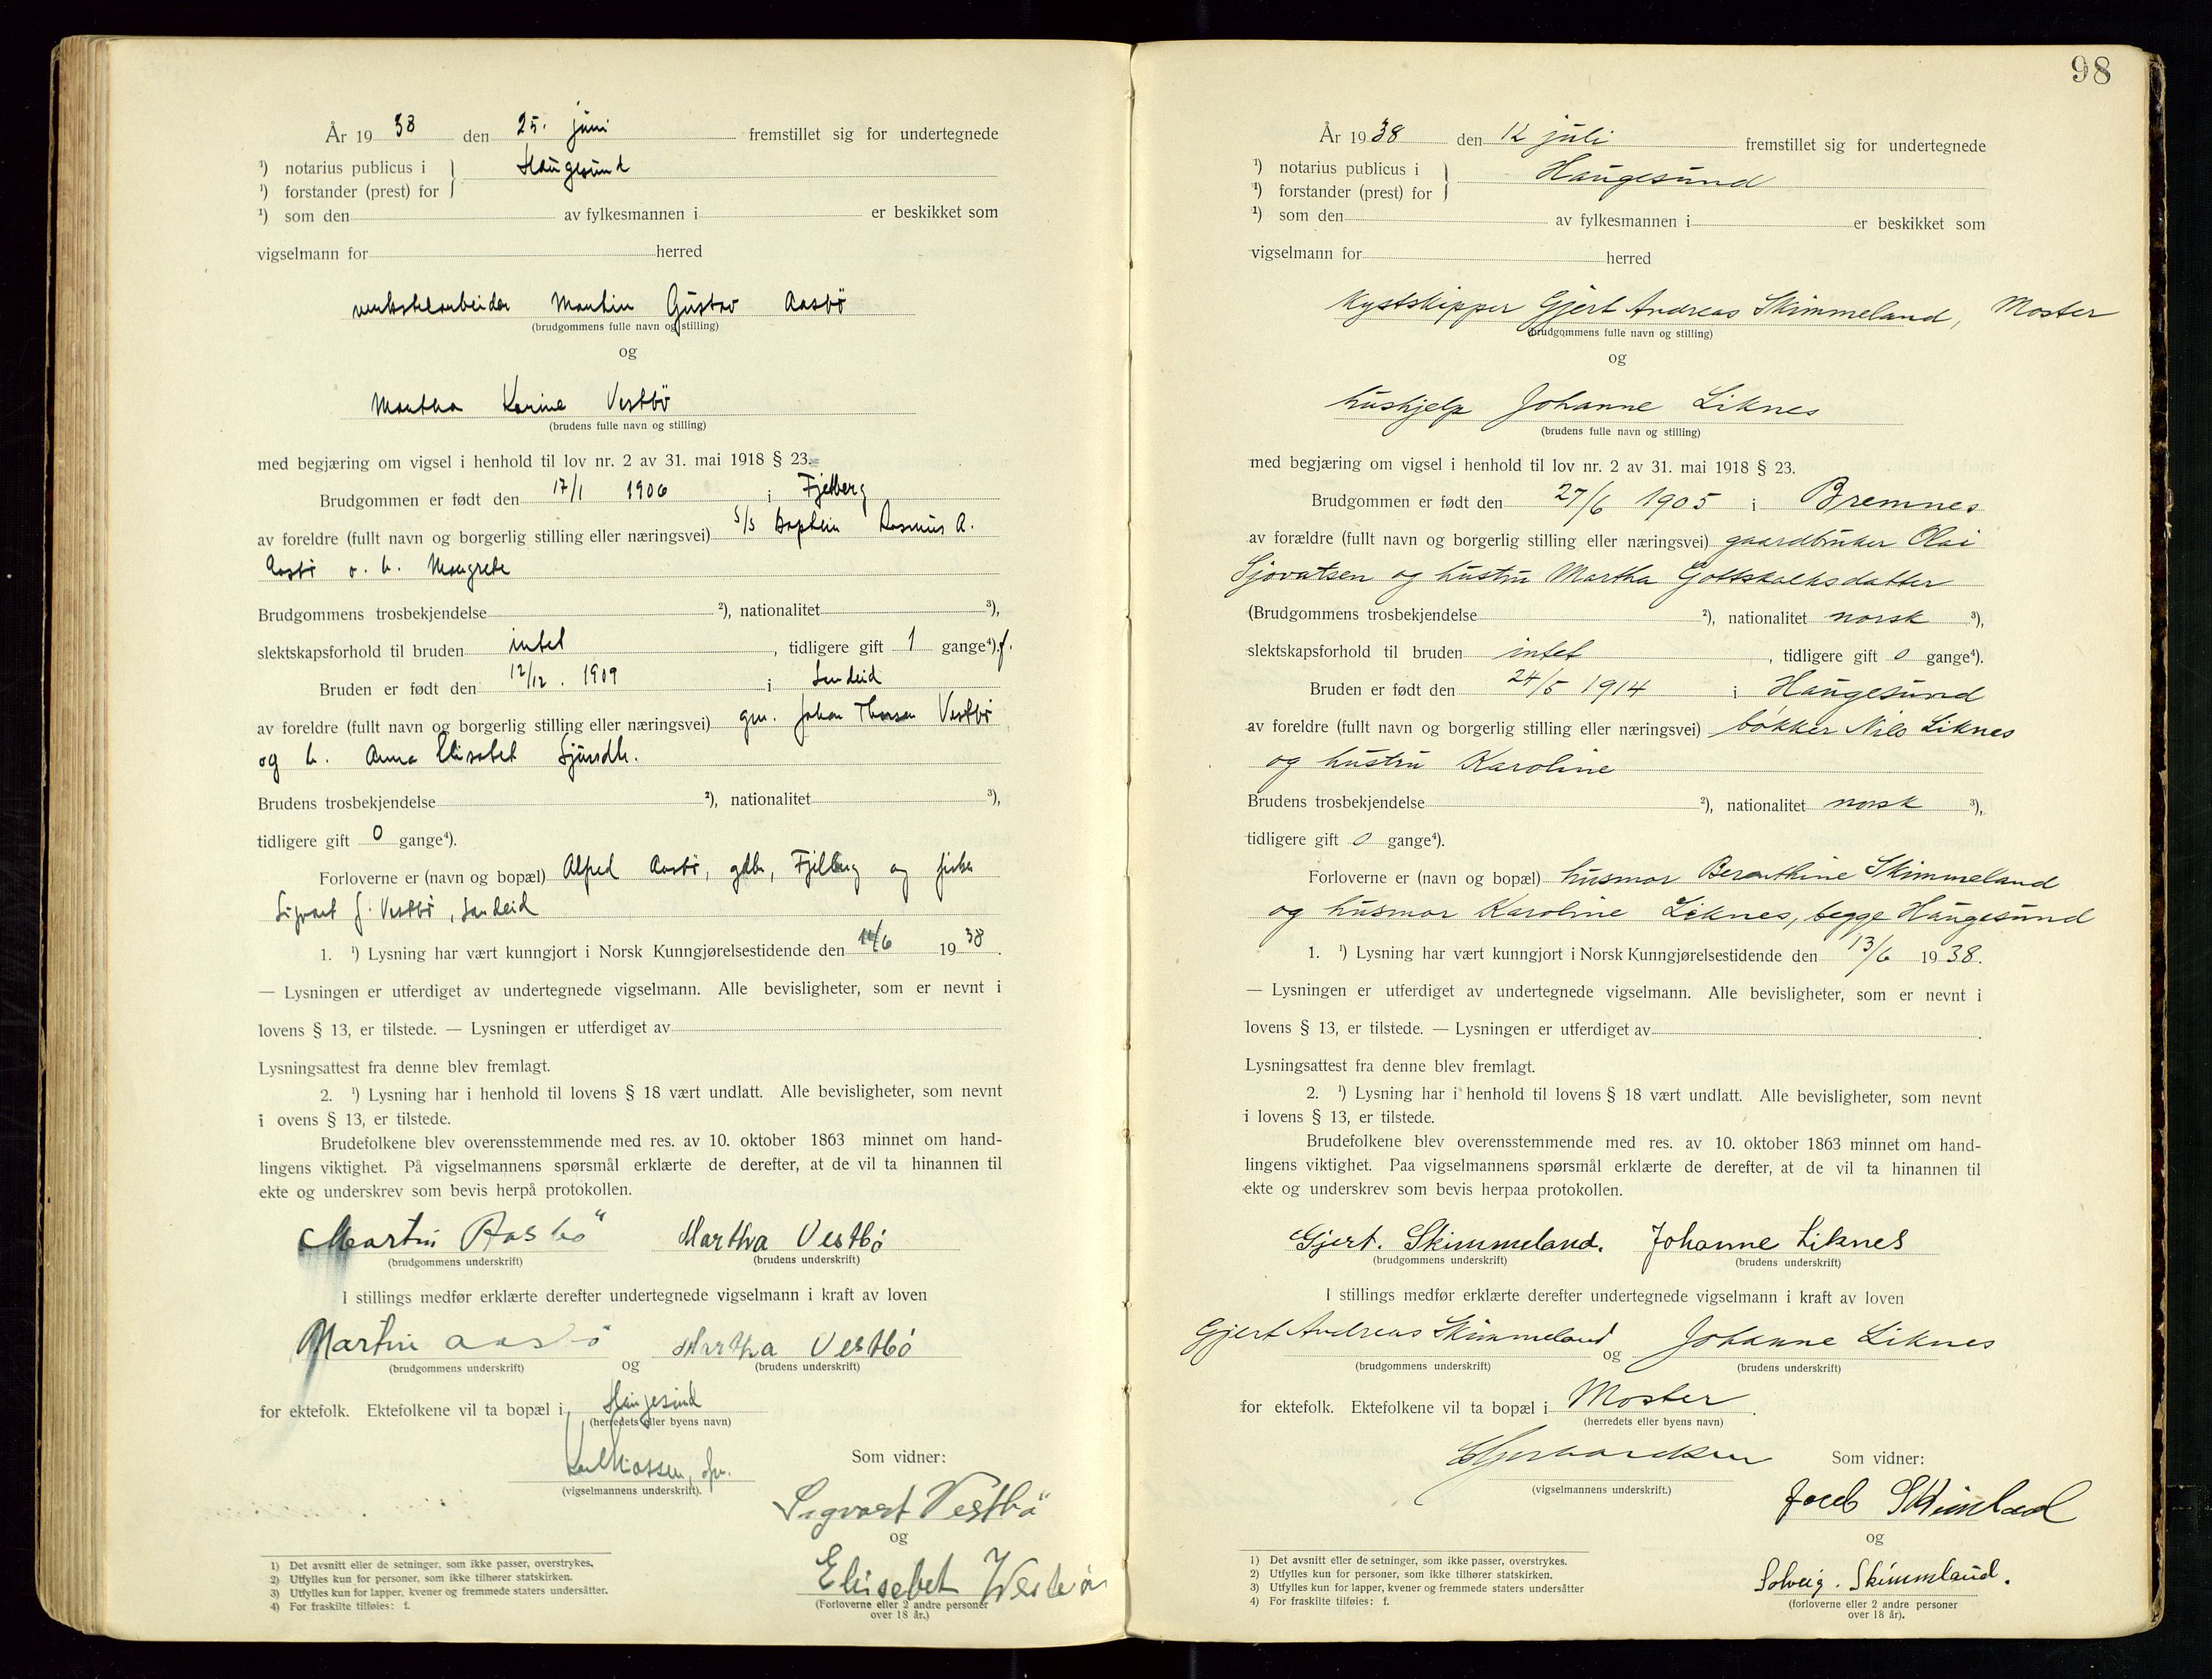 År 19 38 den 25. juni fremstillet sig for undertegnede
¹) notarius publicus i } Haugesund
¹) forstander (prest) for
¹) som den av fylkesmannen i er beskikket som
vigselmann for herred
verkstedarbeider Martin Gustav Aasbö
(brudgommens fulle navn og stilling)
og
Martha Karine Vestbö
(brudens fulle navn og stilling)
med begjæring om vigsel i henhold til lov nr. 2 av 31. mai 1918 § 23.
Brudgommen er født den 17/1 1906 i Fjelberg
av foreldre (fullt navn og borgerlig stilling eller næringsvei) Rasmus A.
Aasbö o. h. Margrete
Brudgommens trosbekjendelse ²), nationalitet ³),
slektskapsforhold til bruden intet , tidligere gift 1 gange⁴). f.
Bruden er født den 12/12. 1909 i Sandeid
av foreldre (fullt navn og borgerlig stilling eller næringsvei) gm. Johan Thorsen Vestbö
og h. Anna Elisabet Sjursdtr.
Brudens trosbekjendelse ²), nationalitet ³),
tidligere gift 0 gange⁴).
Forloverne er (navn og bopæl) Alfred Aasbö, gdbr, Fjelberg og fisker
Sigvart J. Vestbö, Sandeid
1. ¹) Lysning har vært kunngjort i Norsk Kunngjørelsestidende den 19 38.
— Lysningen er utferdiget av undertegnede vigselmann. Alle bevisligheter, som er nevnt i
lovens § 13, er tilstede. — Lysningen er utferdiget av
Lysningsattest fra denne blev fremlagt.
2. ¹) Lysning har i henhold til lovens § 18 vært undlatt. Alle bevisligheter, som nevnt
i ovens § 13, er tilstede.
Brudefolkene blev overensstemmende med res. av 10. oktober 1863 minnet om hand-
lingens viktighet. På vigselmannens spørsmål erklærte de derefter, at de vil ta hinannen til
ekte og underskrev som bevis herpå protokollen.
Martin Aasbö Martha Vestbö
(brudgommens underskrift) (brudens underskrift)
I stillings medfør erklærte derefter undertegnede vigselmann i kraft av loven
Martin Aasbö og Martha Vestbö
(brudgommens underskrift) (brudens underskrift)
for ektefolk. Ektefolkene vil ta bopæl i Haugesund
(herredets eller byens navn)
(vigselmannens underskrift).
Som vidner:
Sigvart Vestbö
og
Elisabet Vestbö
(Forloverne eller 2 andre personer
over 18 år.)
1) Det avsnitt eller de setninger, som ikke passer, overstrykes.
2) Utfylles kun for personer, som ikke tilhører statskirken.
3) Utfylles kun for lapper, kvener og fremmede staters undersåtter.
4) For fraskilte tilføies: f.
98
År 19 38 den 12 juli fremstillet sig for undertegnede
¹) notarius publicus i } Haugesund
¹) forstander (prest) for
¹) som den av fylkesmannen i er beskikket som
vigselmann for herred
Kystskipper Gjert Andreas Skimmeland, Moster
(brudgommens fulle navn og stilling)
og
hushjelp Johanne Liknes
(brudens fulle navn og stilling)
med begjæring om vigsel i henhold til lov nr. 2 av 31. mai 1918 § 23.
Brudgommen er født den 27/6 1905 i Bremnes
av forældre (fullt navn og borgerlig stilling eller næringsvei) gaardbruker Olai
Sjovatsen og hustru Martha Gottskalksdatter
(Brudgommens trosbekjendelse ²), nationalitet norsk ³),
slektskapsforhold til bruden intet , tidligere gift 0 gange⁴).
Bruden er født den 24/5 1914 i Haugesund
av foreldre (fullt navn og borgerlig stilling eller næringsvei) bøkker Nils Liknes
og hustru Karoline
Brudens trosbekjendelse ²), nationalitet norsk ³),
tidligere gift 0 gange⁴).
Forloverne er (navn og bopæl) husmor Berenthine Skimmeland
og husmor Karoline Liknes, begge Haugesund
1. ¹) Lysning har vært kunngjort i Norsk Kunngjørelsestidende den 13/6 19 38.
— Lysningen er utferdiget av undertegnede vigselmann. Alle bevisligheter, som er nevnt i
lovens § 13, er tilstede. — Lysningen er utferdiget av .
Lysningsattest fra denne blev fremlagt.
2. ¹) Lysning har i henhold til lovens § 18 vært undlatt. Alle bevisligheter, som nevnt
i lovens § 13, er tilstede.
Brudefolkene blev overensstemmende med res. av 10. oktober 1863 minnet om hand-
lingens viktighet. Paa vigselmannens spørsmål erklærte de derefter, at de vil ta hinannen til
ekte og underskrev som bevis herpaa protokollen.
Gjert. Skimmeland. Johanne Liknes
(brudgommens underskrift) (brudens underskrift)
I stillings medfør erklærte derefter undertegnede vigselmann i kraft av loven
Gjert Andreas Skimmeland og Johanne Liknes
(brudgommens underskrift) (brudens underskrift)
for ektefolk. Ektefolkene vil ta bopæl i Moster.
(herredets eller byens navn)
(vigselmannens underskrift.)
Som vidner:
og
Solveig. Skimmeland.
(forloverne eller 2 andre personer
over 18 år).
1) Det avsnitt eller de setninger, som ikke passer, overstrykes.
2) Utfylles kun for personer, som ikke tilhører statskirken.
3) Utfylles kun for lapper, kvener og fremmede staters undersåtter
4) For fraskilte tilføies: f.